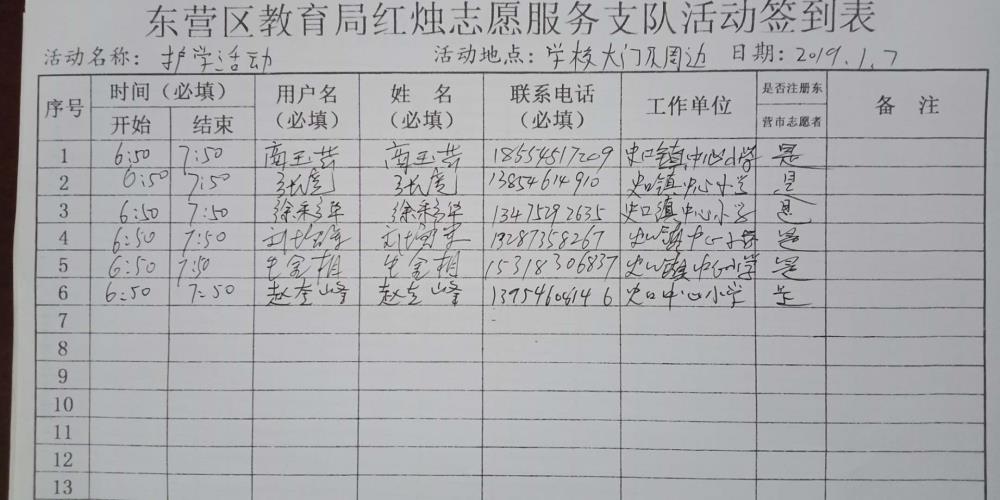 东营区教育局红烛志愿服务支队活动签到表
活动名称：护学活动 活动地点：学校大门及周边 日期：2019.1.7
序号 时间（必填） 用户名（必填） 姓名（必填） 联系电话（必填） 工作单位 是否注册东营市志愿者 备注
开始 结束
1 6:50 7:50 18554517209 史口镇中心小学 是
2 6:50 7:50 张虎 张虎 13854614910 史口镇中心小学 是
3 6:50 7:50 徐秀华 徐秀华 13475292635 史口镇中心小学 是
4 6:50 7:50 史口镇中心小学 是
5 6:50 7:50 生金相 生金相 15318306837 史口镇中心小学 是
6 6:50 7:50 赵奎峰 赵奎峰 史口中心小学 是
7
8
9
10
11
12
13